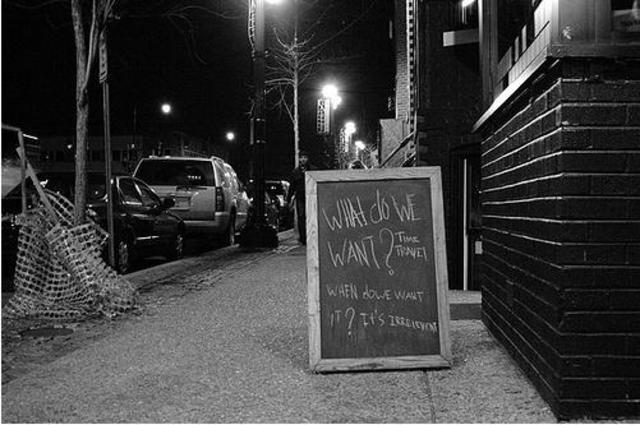 WHAT do WE
WANT? TIME
TRAVEL
WHEN doWE WANT
iT? IT'S IRRELEVENT